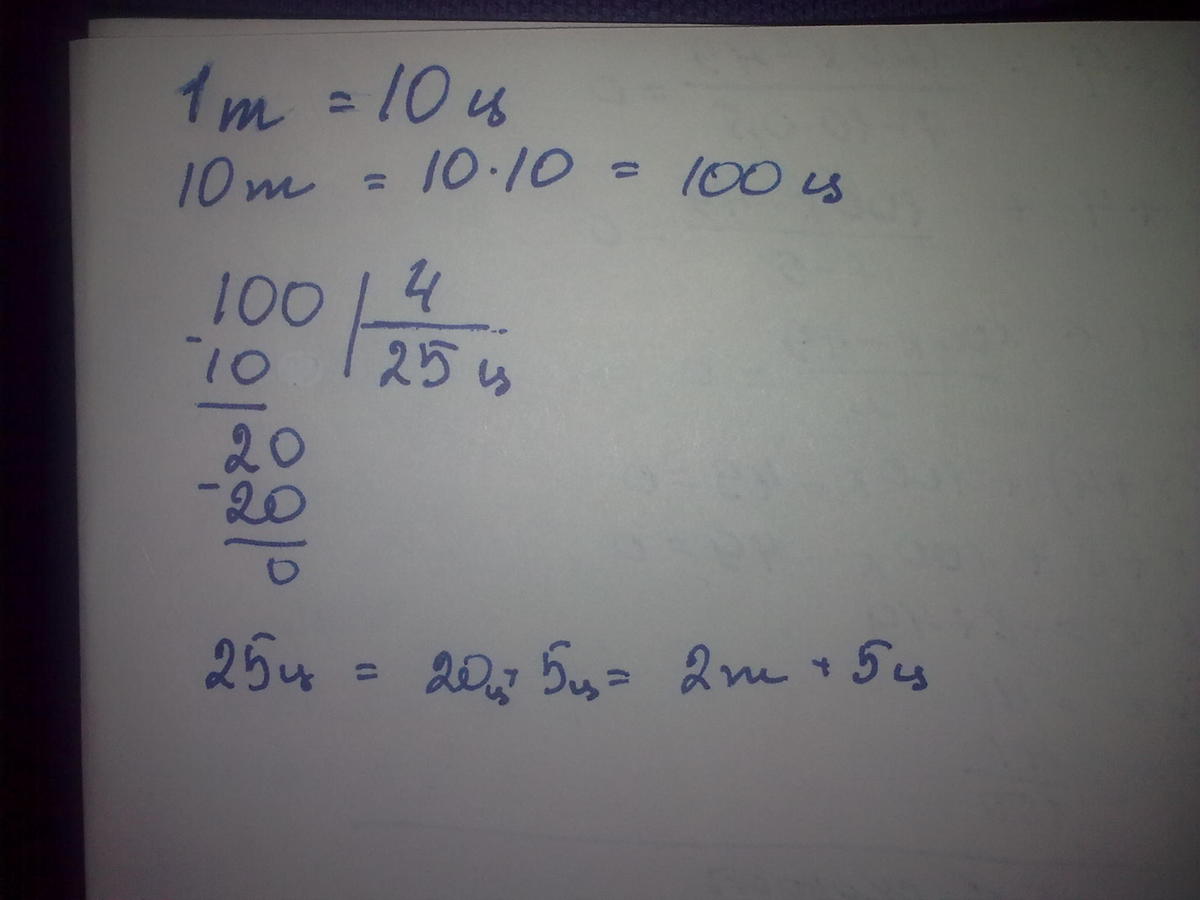 1т = 10 ц
10т = 10·10 = 100 ц
100 | 4
- 10 | 25 ц
20
- 20
0
25ц = 20ц + 5ц = 2т + 5ц